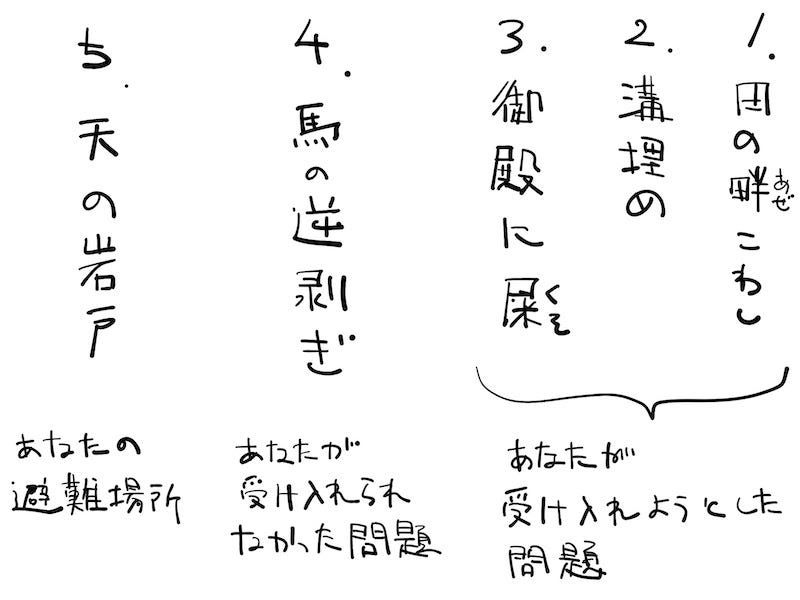 1. 田の畔こわし
あぜ
2. 溝埋め
3. 御殿に屎
くそ
4. 馬の逆剥ぎ
5. 天の岩戸
あなたが
受け入れようとした
問題
あなたが
受け入れられ
なかった問題
あなたの
避難場所